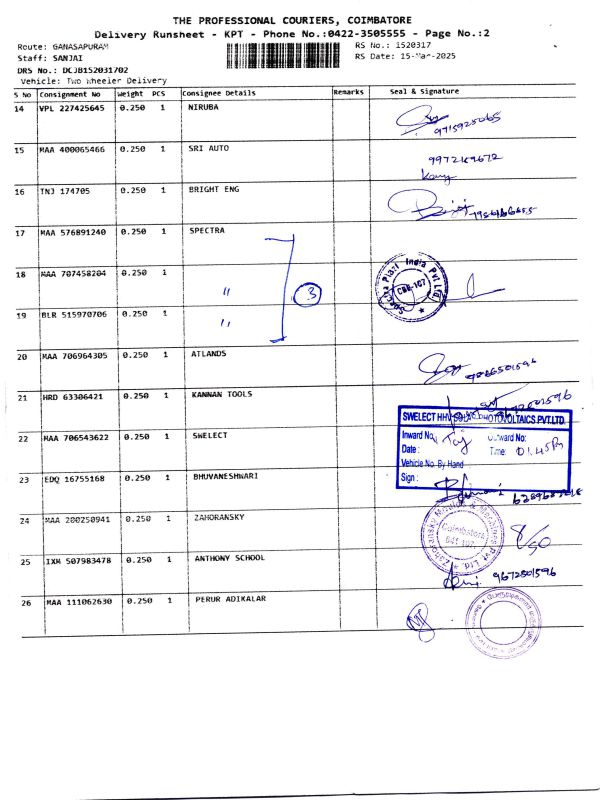 THE PROFESSIONAL COURIERS, COIMBATORE
Delivery Runsheet - KPT - Phone No.:0422-3505555 - Page No.:2
Route: GANASAPURAM
RS No.: 1520317
Staff: SANJAI
RS Date: 15-Mar-2025
DRS No.: DCJB152031702
Vehicle: Two Wheeler Delivery
S No Consignment No Weight PCS Consignee Details Remarks Seal & Signature
14 VPL 227425645 0.250 1 NIRUBA
15 MAA 400065466 0.250 1 SRI AUTO
16 TNJ 174705 0.250 1 BRIGHT ENG
17 MAA 576891240 0.250 1 SPECTRA
18 MAA 707458204 0.250 1 "
3
Spectra Plast India Pvt Ltd
CBE-107
19 BLR 515970706 0.250 1 "
20 MAA 706964305 0.250 1 ATLANDS
21 HRD 63306421 0.250 1 KANNAN TOOLS
SWELECT HHV PHOTOVOLTAICS PVT.LTD
22 MAA 706543622 0.250 1 SWELECT
Inward No. Outward No:
Date: Time: 01.45
Vehicle No. By Hand
Sign:
23 EDQ 16755168 0.250 1 BHUVANESHWARI
24 MAA 200250941 0.250 1 ZAHORANSKY
Coimbatore
641 107
25 IXM 507983478 0.250 1 ANTHONY SCHOOL
9672801596
26 MAA 111062630 0.250 1 PERUR ADIKALAR